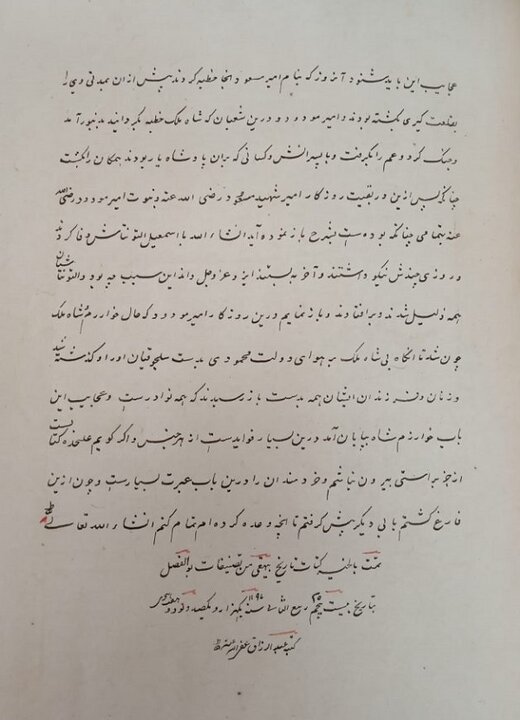 عجایب این باید شنود آنروز که بنام امیر مسعود آنجا خطبه کردند پیش از آن بمدتی وی را
بکشته بودند و امیر مودود درین شعبان که شاه ملک خطبه بگردانید بدنبور آمد
و جنگ کرد و عم را بگرفت و با پسرانش و کسانی که بران پادشاه یار بودند همکان را بکشت
چنانکه پس ازین در بقیت روزکار امیر شهید مسعود رضی الله عنه و نوبت امیر مودود رضی الله
عنه بتمامی چنانکه بوده است بشرح باز نموده آید انشاء الله با اسمعیل التونتاش وفا کردند
و روزی چندش نیکو داشتند و آخر به بستند ایزد عز و جل داند این سبب چه بود و التونتاشیان
همه ذلیل شدند و برافتادند و باز نمایم درین روزکار امیر مودود که حال خوارزم و شاه ملک
چون شد تا آنگاه بی شاه ملک بر هوای دولت محمودی بدست سلجوقیان افتاد و گذشته شد
و زنان و فرزندان ایشان همه بدست باز رسیدند که همه نوادرست و عجایب این
باب خوارزم شاه بپایان آمد درین بسیار فوایدست از هر جنس و اگر گویم علیحده کتابیست
از خبر راستی بیرون نباشم و خردمندان را درین باب عبرت بسیارست و چون ازین
فارغ گشتم بابی دیگر پیش گرفتم تا آنچه وعده کرده ام تمام کنم انشاء الله تعالی
تمت بالخیر کتاب تاریخ بیهقی من تصنیفات بوالفضل
بتاریخ بیست پنجم ۲۵ ربیع الثانی ۱۱۹۲ سنه یکهزار و یکصد و نود و
کتبه عبدالرزاق غفر الله